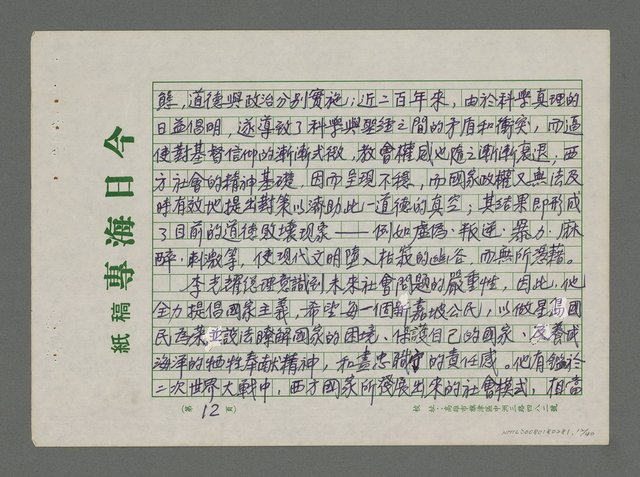 今日海專
稿紙
態，道德與政治分別實施；近二百年來，由於科學真理的
日益倡明，遂導致了科學與聖經之間的矛盾和衝突，而逼
使對基督信仰的漸漸式微，教會權威也隨之漸漸衰退，西
方社會的精神基礎，因而呈現不穩，而國家政權又無法及
時有效地提出對策以濟助此一道德的真空；其結果即形成
了目前的道德毀壞現象——例如虛偽、叛逆、暴力、麻
醉、刺激等，使現代文明墮入枯寂的幽谷，而無所憑藉。
李光耀總理意識到未來社會問題的嚴重性，因此，他
全力提倡國家主義，希望每一個新嘉坡公民，以做星島國
民為榮並設法瞭解國家的困境、保護自己的國家、養成
海洋的犧牲奉獻精神，和盡忠職守的責任感。他有鑑於
二次世界大戰中，西方國家所發展出來的社會模式，相當
（第12頁）
校址：高雄市旗津區中洲三路四八二號